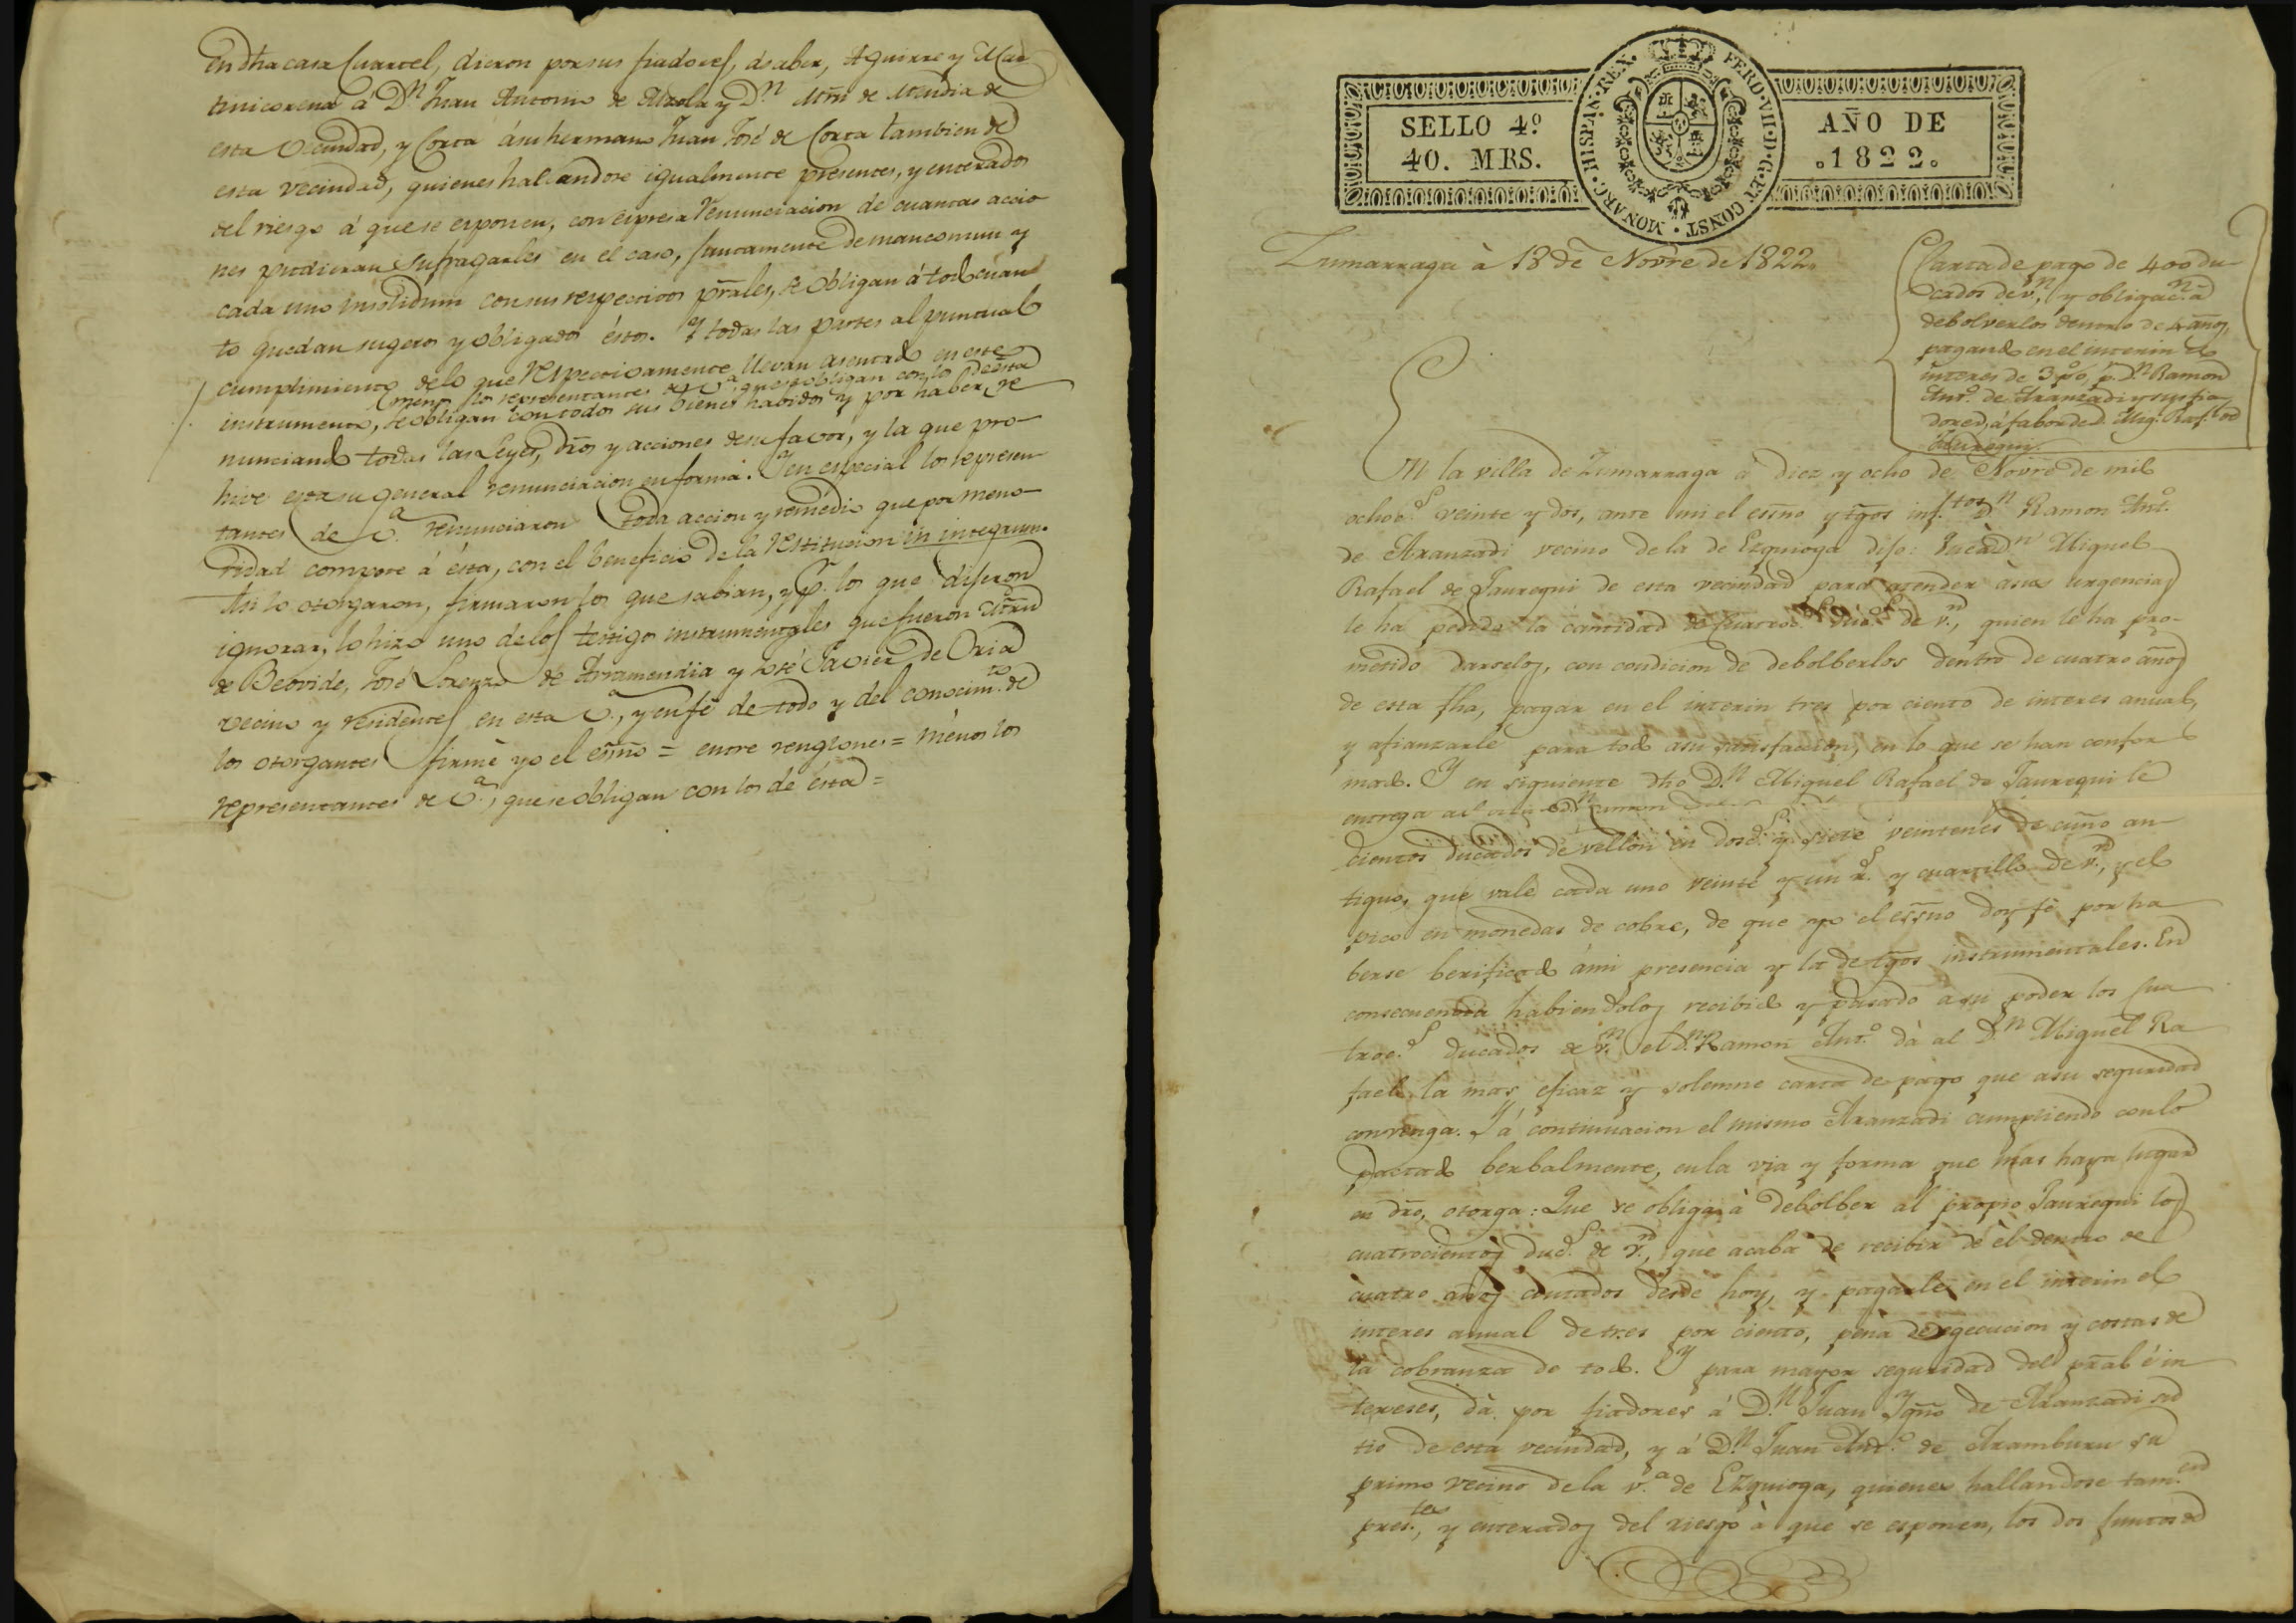 En dha casa Cuartel, dieron por sus fiadores, á saber, Aguirre y Mar
tinicorena á Dn Juan Antonio de Alzola y Dn Mrn de Mendia de
esta vecindad, y Corta ásu hermano Juan José de Corta tambien de
esta vecindad, quienes hallandose igualmente presentes, y enterados
del riesgo á que se esponen, con espresa renunciacion de cuantas accio
nes pudieran sufragarles en el caso, juntamente de mancomun y
cada uno insolidum con sus respectivos prales, se obligan á todo cuan
to quedan sugetos y obligados éstos. Y todas las partes al puntual
cumplimiento de lo que respectivamente llevan asentado en este
menos los representantes de Va, que se obligan con los de ésta
instrumento, se obligan con todos sus bienes habidos y por haber, re
nunciando todas las Leyes, dros y acciones de su favor, y la que pro-
hive esta su general renunciacion en forma. Y en especial los represen
tantes de Va. renunciaron toda accion y remedio que por meno-
ridad compete á ésta, con el beneficio de la restitucion in integrum.
Asi lo otorgaron, firmaron los que sabian, y pr. los que dijeron
ignorar, lo hizo uno de los testigos instrumentales que fueron
de Beovide, José Lorenzo de Arramendia y José Javier de Oria
vecino y residentes en esta Va., y en fé de todo y del conocimto. de
los otorgantes firmé yo el esno = entre renglones = ménos los
representantes de Va., que se obligan con los de ésta =
SELLO 4º
40. MRS.
MONARC. HISPAN. REX. FERD. VII. D. G. ET CONST.
AÑO DE
1822.
Zumarraga à 18 de Novre de 1822.
Carta de pago de 400 du-
cados de vn, y obligacn. á
debolverlos dentro de 4 años,
pagando en el interin el
interes de 3 p%, pr. Dn Ramon
Anto. de Aranzadi y sus fia-
dores, á fabor de D. Mig. Raf. de
Jauregui.
En la villa de Zumarraga á diez y ocho de Novre de mil
ochos. veinte y dos, ante mi el esno y tgos inftos Dn Ramon Anto.
de Aranzadi vecino de la de Ezquioga dijo: Que à Dn Miguel
Rafael de Jauregui de esta vecindad para atender àsus urgencias
le ha pedido la cantidad de Cuatros. duos. de vn., quien le ha pro-
metido darselos, con condicion de debolberlos dentro de cuatro años
de esta fha, pagar en el interin tres por ciento de interes anual,
y afianzarle para todo asu satisfaccion, en lo que se han confor
mado. Y en siguiente dho Dn Miguel Rafael de Jauregui le
entrega al Dn Ramon
cientos ducados de vellon en doss. y siete veintenes de cuño an-
tiguo, que vale cada uno veinte y un rs. y cuartillo de vn., y el
pico en monedas de cobre, de que yo el esno doy fé por ha
berse berificado ámi presencia y la de tgos instrumentales. En
consecuencia habiendolos recibido y pasado asu poder los Cua
tros. ducados de vn. el Dn. Ramon Anto. dà al Dn Miguel Ra
fael la mas eficaz y solemne carta de pago que asu seguridad
convenga. Y á continuacion el mismo Aranzadi cumpliendo con lo
pactado berbalmente, en la via y forma que mas haya lugar
en dro, otorga: Que se obliga à debolber al propio Jauregui los
cuatrocientos ducs. de vn., que acaba de recibir de èl dentro de
cuatro años contados desde hoy, y pagarle en el interin el
interes anual de tres por ciento, pena de egecucion y costas de
la cobranza de todo. Y para mayor seguridad del pral é in
tereses, dà por fiadores á Dn Juan Igno de Aranzadi su
tio de esta vecindad, y á Dn Juan Anto. de Aramburu su
primo vecino de la va. de Ezquioga, quienes hallandose tamen
prestes, y enterados del riesgo à que se esponen, los dos juntos de